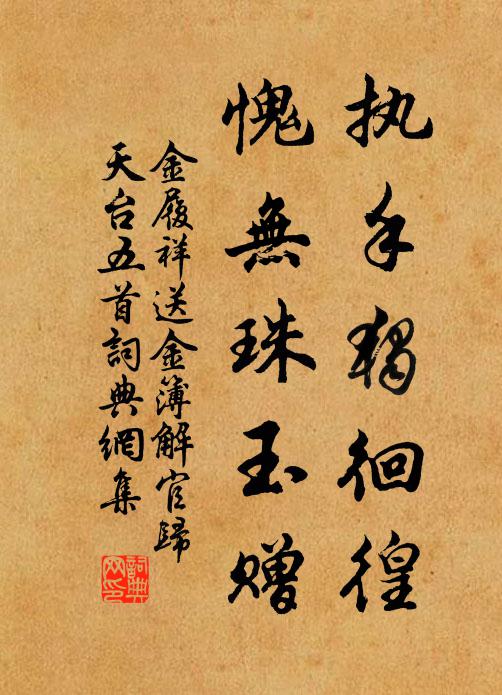 执手独徊徨
愧無珠玉赠
金履祥送金簿解官歸
天台五首詞典網集
詞典网印